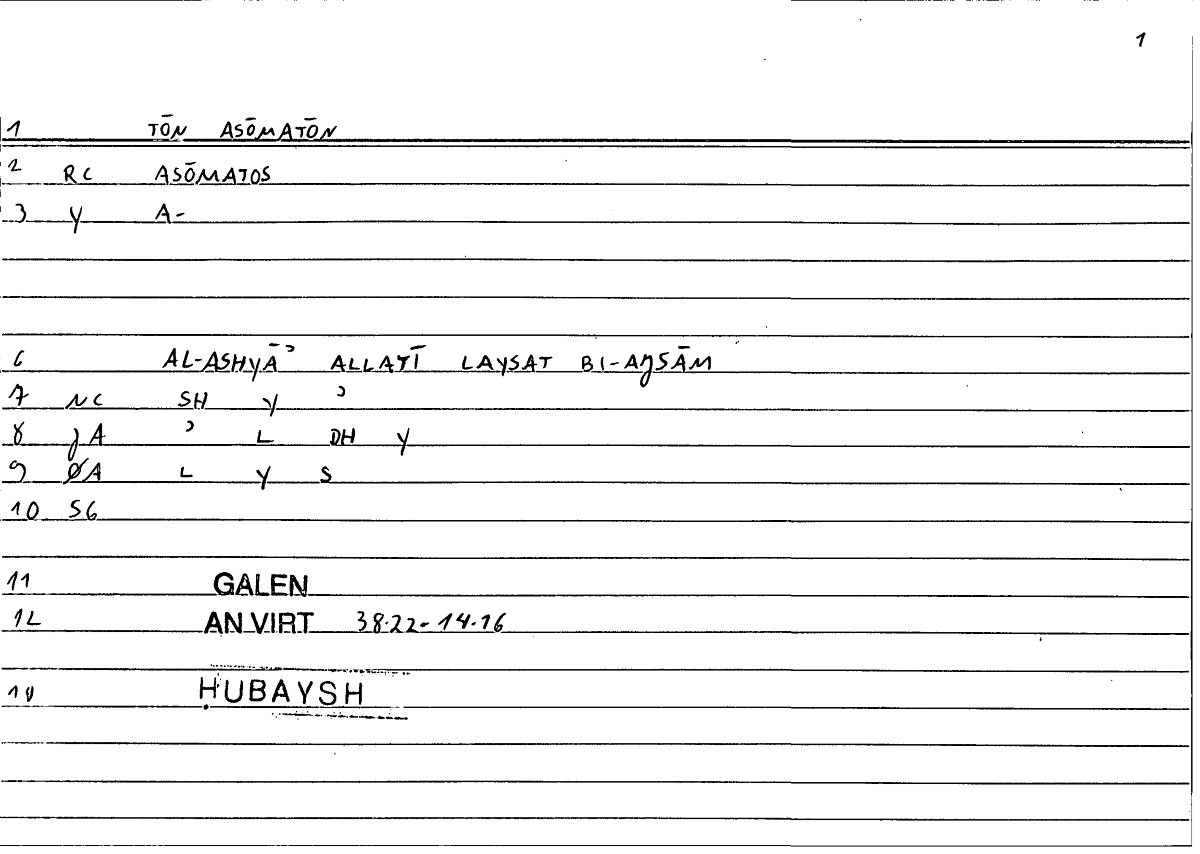 1
1 TŌN ASŌMATŌN
2 RC ASŌMATOS
3 Y A-
6 AL-ASHYĀʾ ALLATĪ LAYSAT BI-AJSĀM
7 NC SH Y ʾ
8 JA ʾ L DH Y
9 ØA L Y S
10 SG
11 GALEN
12 AN VIRT 38.22-14.16
ḤUBAYSH